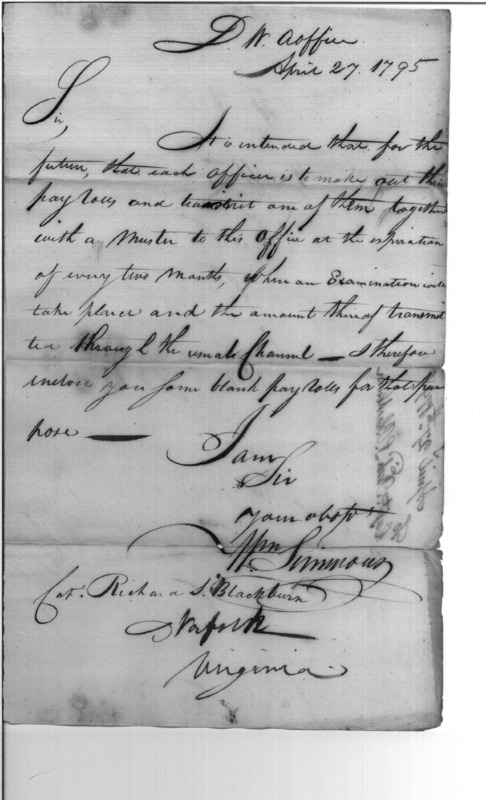 D. W. Aoffice
April 27. 1795
Sir,
It is intended that for the
future, that each officer is to make out their
pay rolls and transmit one of them together
with a Muster to this Office at the expiration
of every two Months, when an Examination will
take place and the amount thereof transmit
ted through the usual Channel — I therefore
inclose you some blank pay rolls for that pur
pose —
I am
Sir
your obdt
Wm Simmons
Capt. Richard S. Blackburn
Norfolk
Virginia.